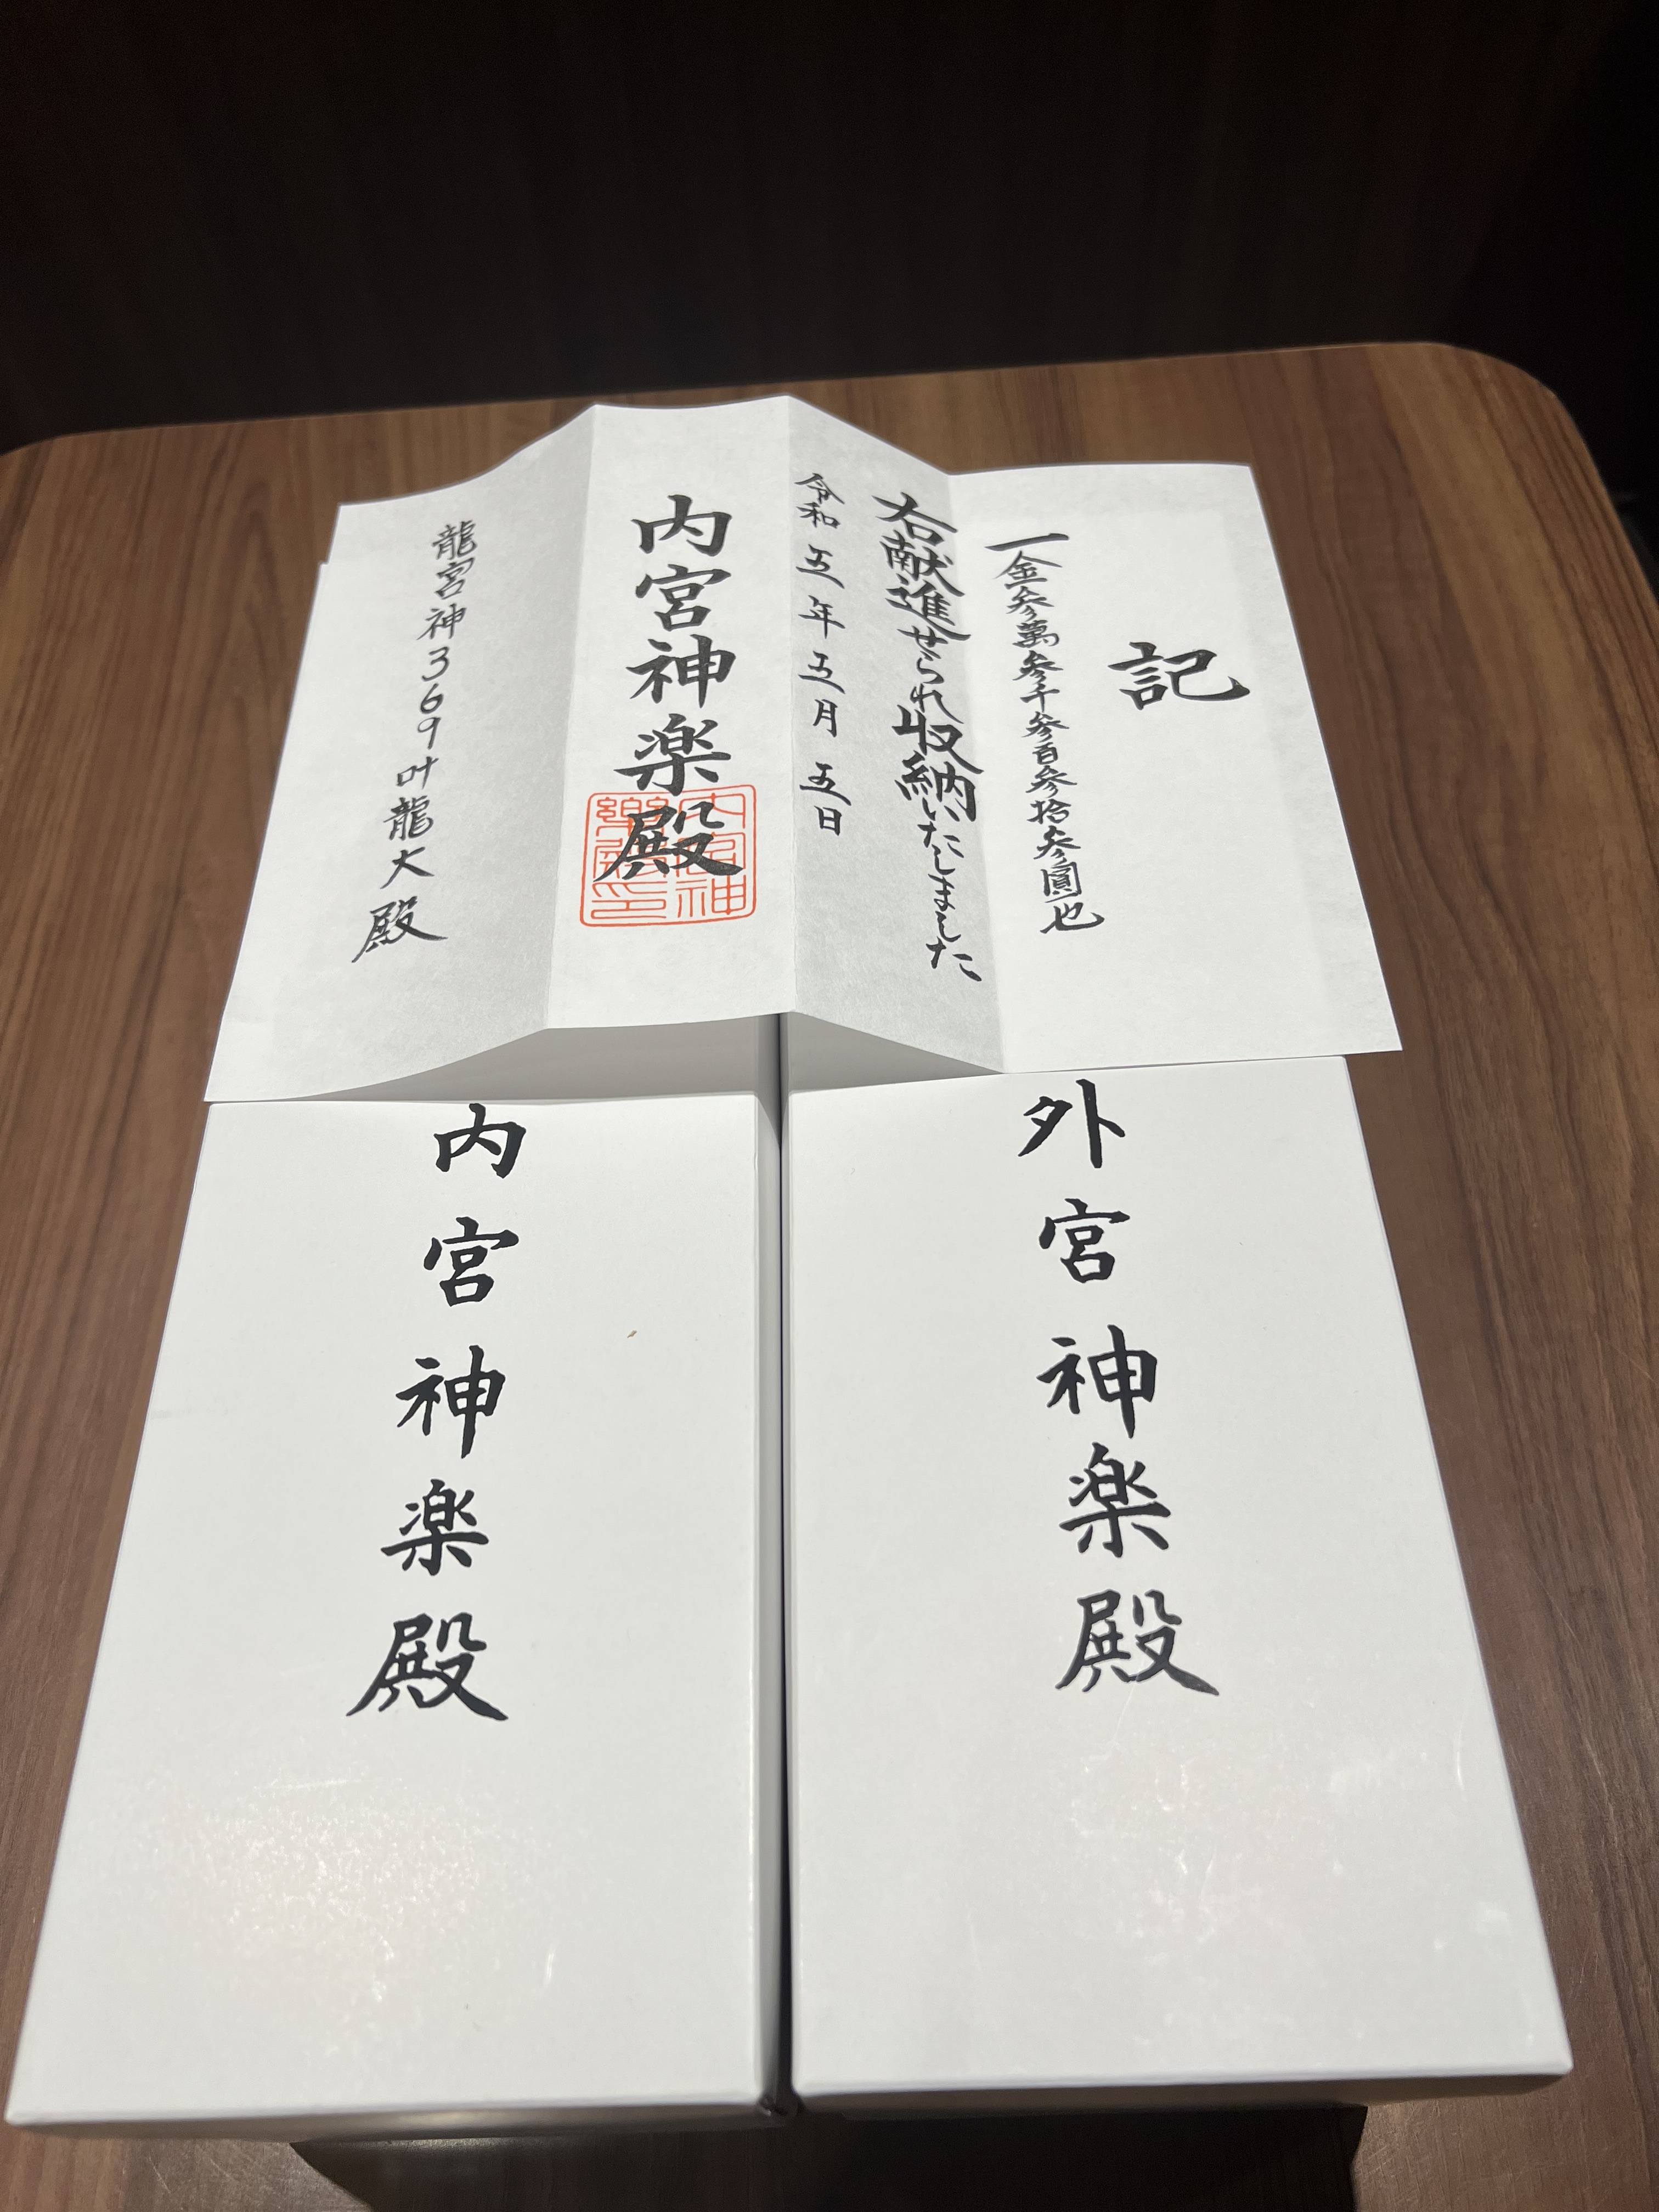 記
一金参萬参千参百参拾参圓也
右献進せられ収納いたしました
令和五年五月五日
内宮神楽殿
龍宮神369叶龍大殿
外宮神楽殿
内宮神楽殿